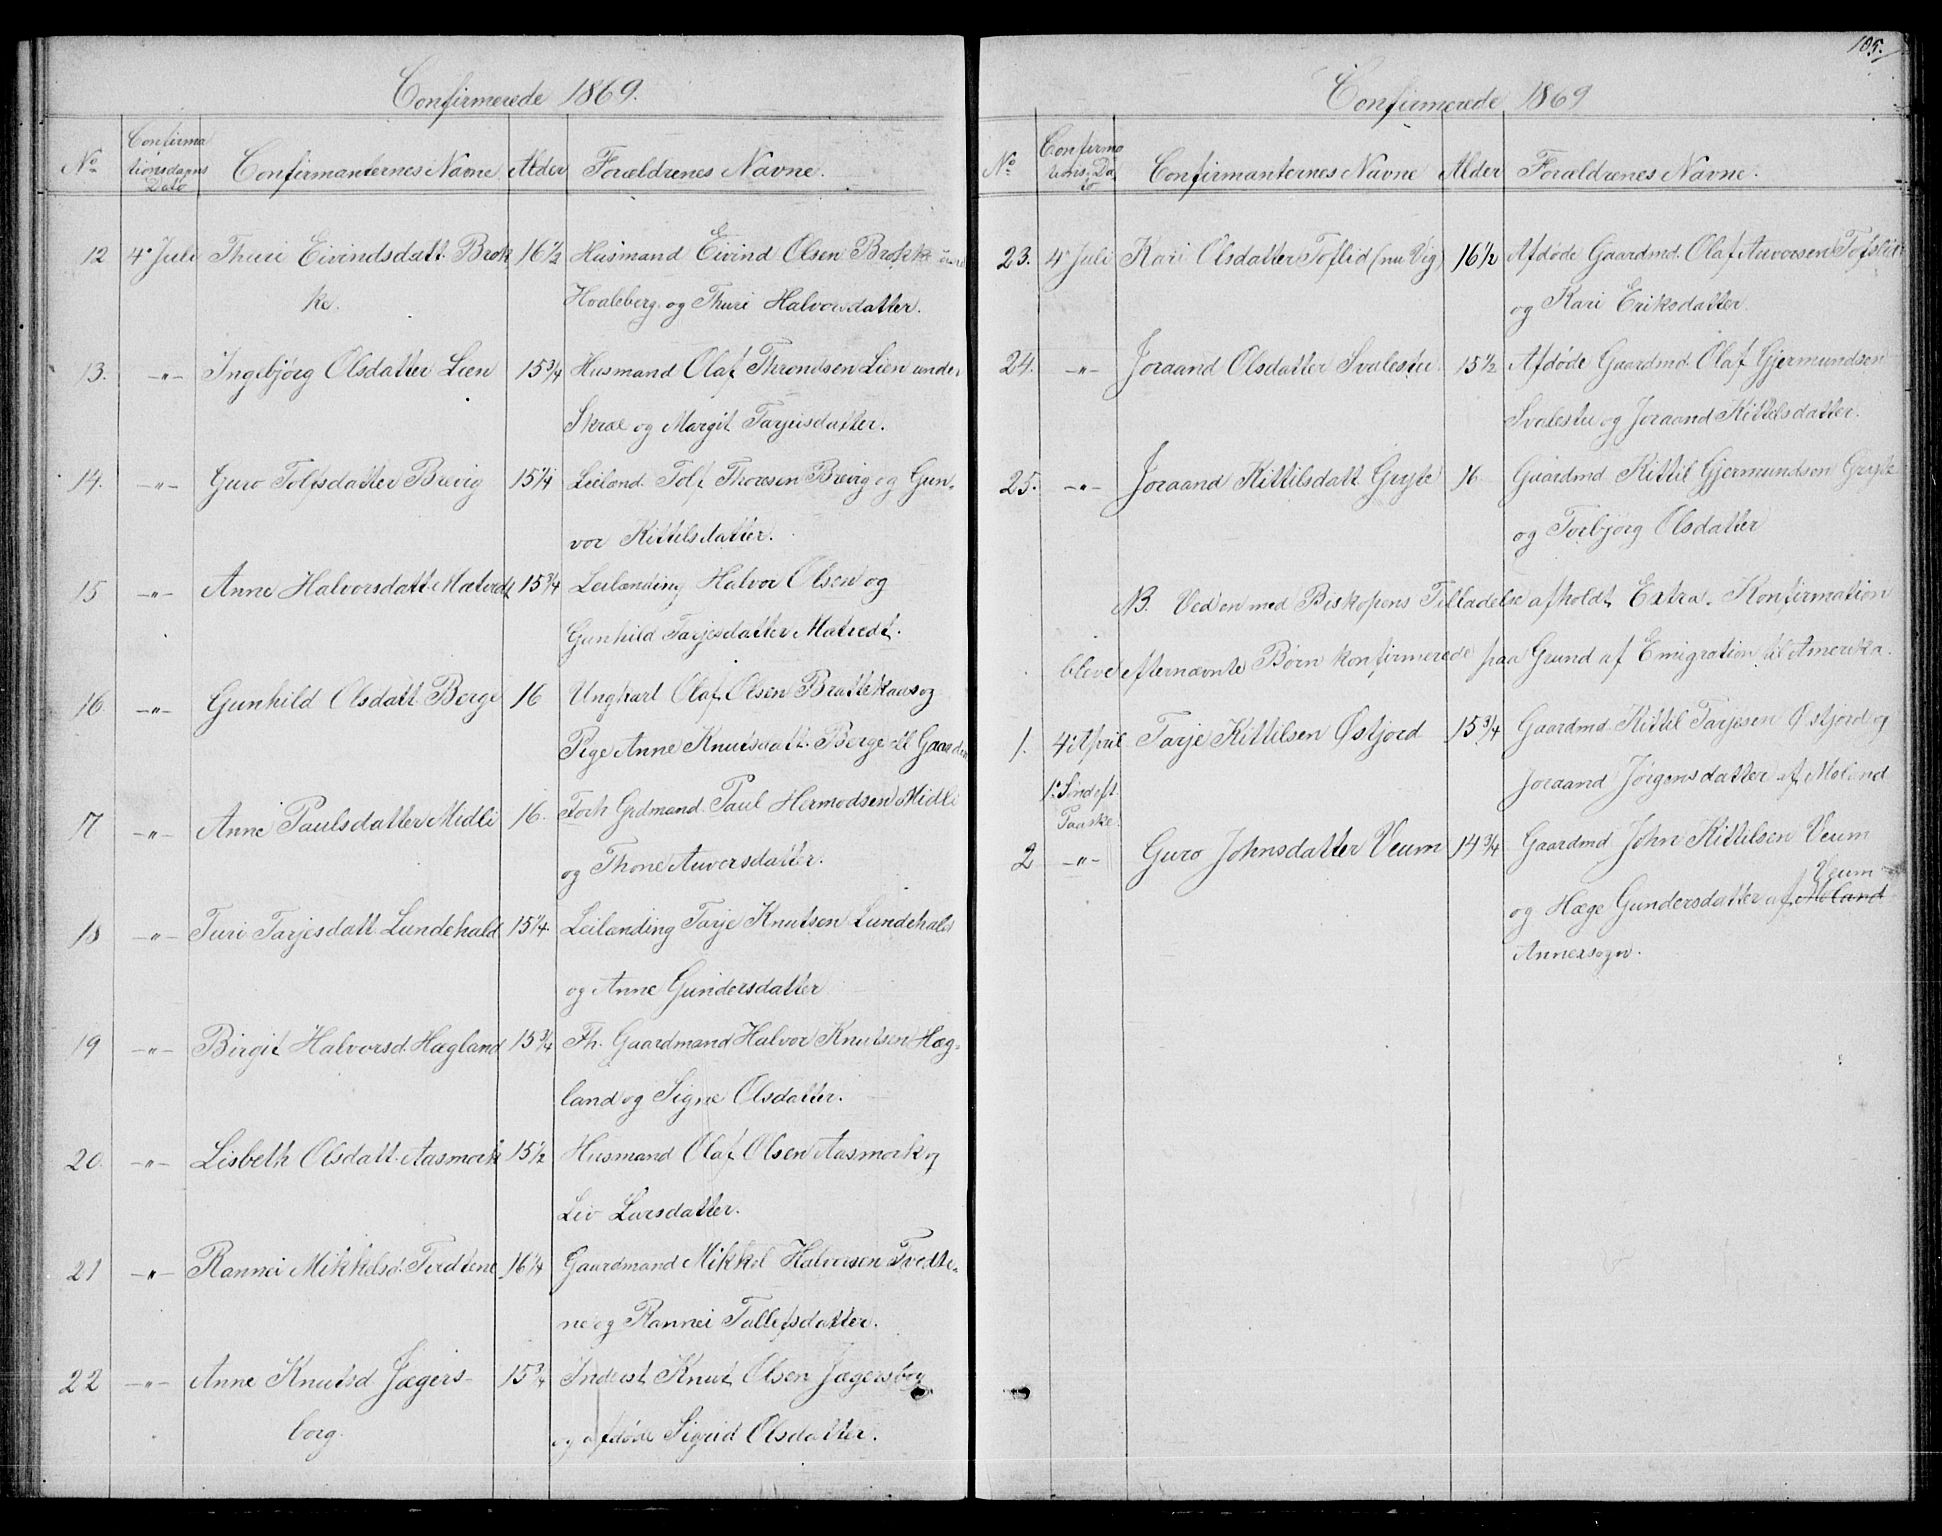 Confirmerede 1869.
No Confirmationsdagens Dato Confirmanternes Navne Alder Forældrenes Navne.
12 4de Juli Thuri Eivindsdatt. Brok 16 1/2 Husmand Eivind Olsen Brokke under
ke. Hvaleberg og Thuri Halvorsdatter.
13. -"- Ingebjørg Olsdatter Lien 15 3/4 Husmand Olaf Throndsen Lien under
Skræ og Margit Tarjeisdatter.
14. -"- Guro Tolfsdatter Brevig 15 1/4 Leiland Tolf Thoresen Brevig og Gun-
vor Kittilsdatter.
15 -"- Anne Halvorsdatt. Matvedt 15 3/4 Leilænding Halvor Olsen og
Gunhild Tarjesdatter Matvedt.
16. -"- Gunhild Olsdatt. Berge 16 Ungkarl Olaf Olsen Brattekaas og
Pige Anne Knutsdatt. Berge
17 -"- Anne Paulsdatter Midli 16. Forh Grdmand Paul Hermodsen Midli
og Thone Auversdatter.
18 -"- Turi Tarjesdatt Lundehald 15 1/4. Leilænding Tarje Knutsen Lundehald
og Anne Gundersdatter
19 -"- Birgit Halvorsd. Hægland 15 3/4 Fh. Gaardmand Halvor Knutsen Hæg-
land og Signe Olsdatter.
20. -"- Lisbeth Olsdatt. Aasmork 15 1/2 Husmand Olaf Olsen Aasmork og
Liv Larsdatter.
21 -"- Rannei Mikkelsd. Tvedtene 16 1/4 Gaardmand Mikkel Halvorsen Tvedte-
ne og Rannei Tallefsdatter.
22 -"- Anne Knutsd Jægers- 15 3/4 Inderst Knut Olsen Jægersborg
borg. og afdøde Sigrid Olsdatter.
105.
Confirmerede 1869
No Confirmations Dato Confirmanternes Navne Alder Forældrenes Navne.
23. 4de Juli Kari Olsdatter Toflid (nu Vig) 16 1/2 Afdøde Gaardmd. Olaf Auversen Tofslid
og Kari Eriksdatter.
24. -"- Joraand Olsdatter Svalestu. 15 1/2 Afdøde Gaardmd. Olaf Gjermundsen
Svalestu og Joraand Kittilsdatter.
25. -"- Joraand Kittilsdatt Gryte 16 Gaardmd Kittil Gjermundson Gryte
og Torbjørg Olsdatter
NB. Ved en med Biskopens Tilladelse afholdt Extra-Konfirmation
bleve efternævnte Børn konfirmerede paa Grund af Emigration til Amerika.
1. 4de April Tarje Kittilsen Østjord 15 3/4 Gaardmd. Kittil Tarjesen Østjord og
1ste Sønd eft. Joraand Jørgensdatter af Moland
Paaske.
2 -"- Guro Johnsdatter Veum 14 3/4 Gaardmd John Kittilsen Veum
Veum
og Hæge Gundersdatter af Moland
Annexsogn.